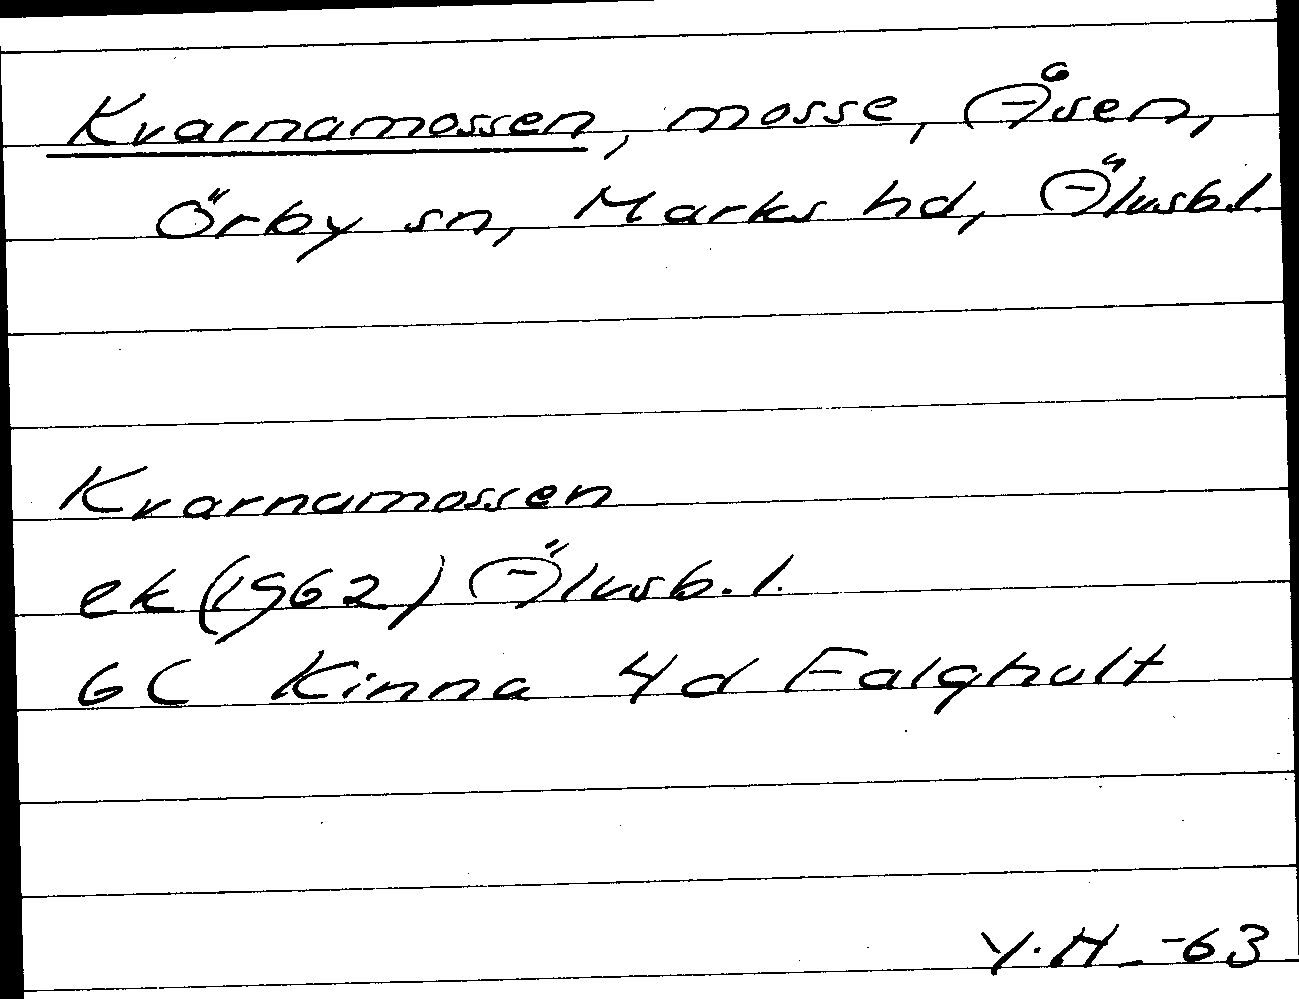 Kvarnamossen, mosse, Åsen,
Örby sn, Marks hd, Älvsb.l.
Kvarnamossen
ek (1962) Älvsb.l.
6C Kinna 4d Falghult
Y.H. -63